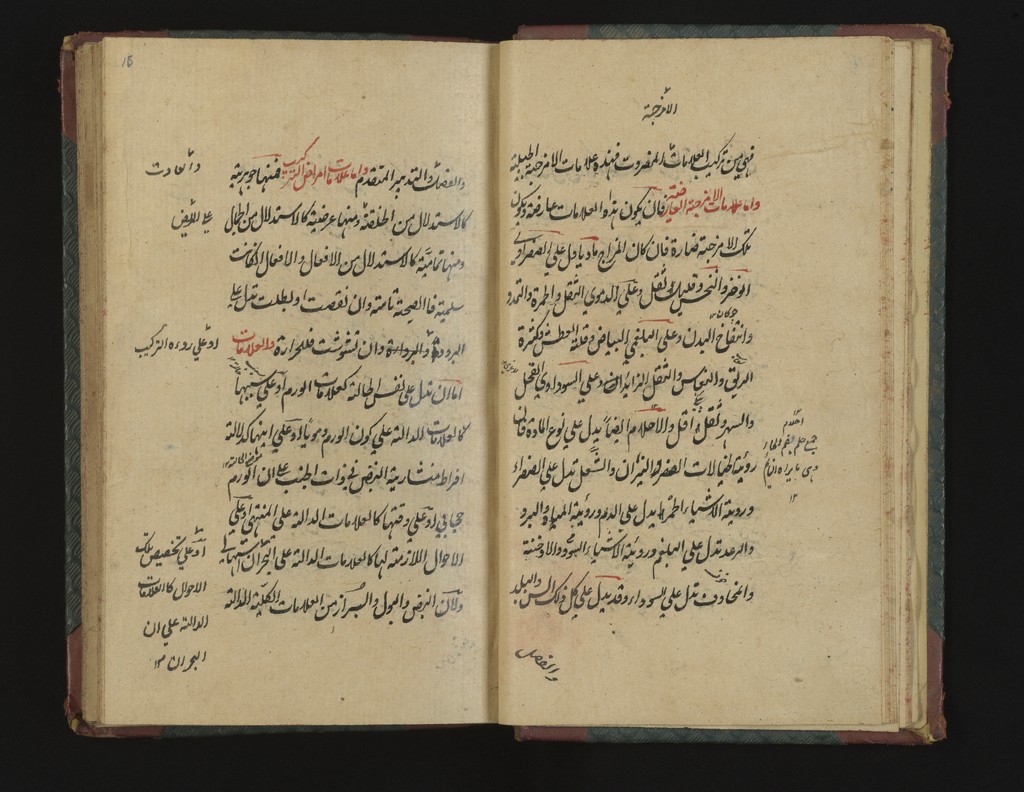 الامزجة
فهي من تركيب العلامات المفردات فهذه علامات الامزجة الجبلية
واما علامات الامزجة العارضية فان يكون هذه العلامات عارضة ويكون
تلك الامزجة ضارة فان كان المزاج ماديا دل على الصفراوي
الوخز والنخس وقلة الثقل وعلى الدموي الثقل والحمرة والتمدد
وانتفاخ البدن وعلى البلغمي البياض وقلة العطش وكثرة
الريق والنعاس والثقل الزائد وعلى السوداوي القحل
والسهر وثقل اقل والاحلام ايضا يدل على نوع المادة فان
رؤية خيالات الصفر والنيران والشعل تدل على الصفراء
ورؤية الاشياء الحمر يدل على الدم ورؤية المياه والبرد
والرعد تدل على البلغم ورؤية الاشياء السود والادخنة
والمخاوف تدل على السوداء وقد يدل على كل ذلك السن والبلد
والفصل
احلام
جمع حلم بضم الحاء
وهي ما يراه النائم
١٢
15
والفصل والتدبير المتقدم واما علامات امراض التركيب فمنها جوهرية
كالاستدلال من الخلقة ومنها عرضية كالاستدلال من الجمال
ومنها تمامية كالاستدلال من الافعال والافعال ان كانت
سليمة فالصحة تامة وان نقصت او بطلت تدل على
البرودة وان تشوشت فللحرارة والعلامات
اما ان تدل على نفس الحالة كعلامات الورم او على سببها
كالعلامات الدالة على كون الورم دمويا او على اينها كدلالة
افراط منشارية النبض في ذات الجنب على ان الورم
حجابي او على وقتها كالعلامات الدالة على المنتهى او على
الاحوال اللازمة لها كالعلامات الدالة على البحران
ولان النبض والبول والبراز من العلامات الكلية الدالة
والعادت
او على رداءة التركيب
او على تخصيص تلك
الاحوال كالعلامات
الدالة على ان
البحران ١٢